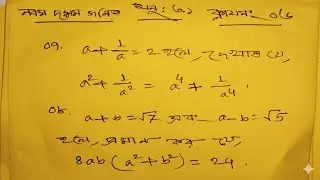 নবম দশম গণিত অনু: ৩.১ ক্লাসঃ ০৬
০৭. a + 1/a = 2 হলে, দেখাও যে,
a² + 1/a² = a⁴ + 1/a⁴.
০৮. a+b = √7 এবং a-b = √5
হলে, প্রমাণ কর যে,
8ab(a²+b²) = 24.